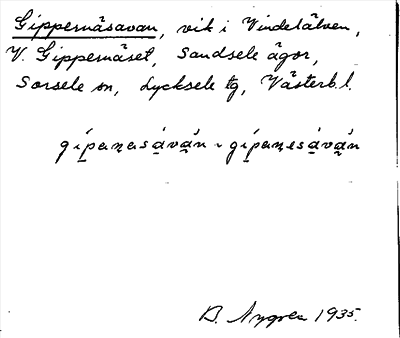 Gippernäsavan, vik i Vindelälven,
V. Gippernäset, Sandsele ägor,
Sorsele sn, Lycksele tg, Västerb. l.
gi̱panasa̱va̱n ~ gi̱panesa̱va̱n
B. Nygren 1935.